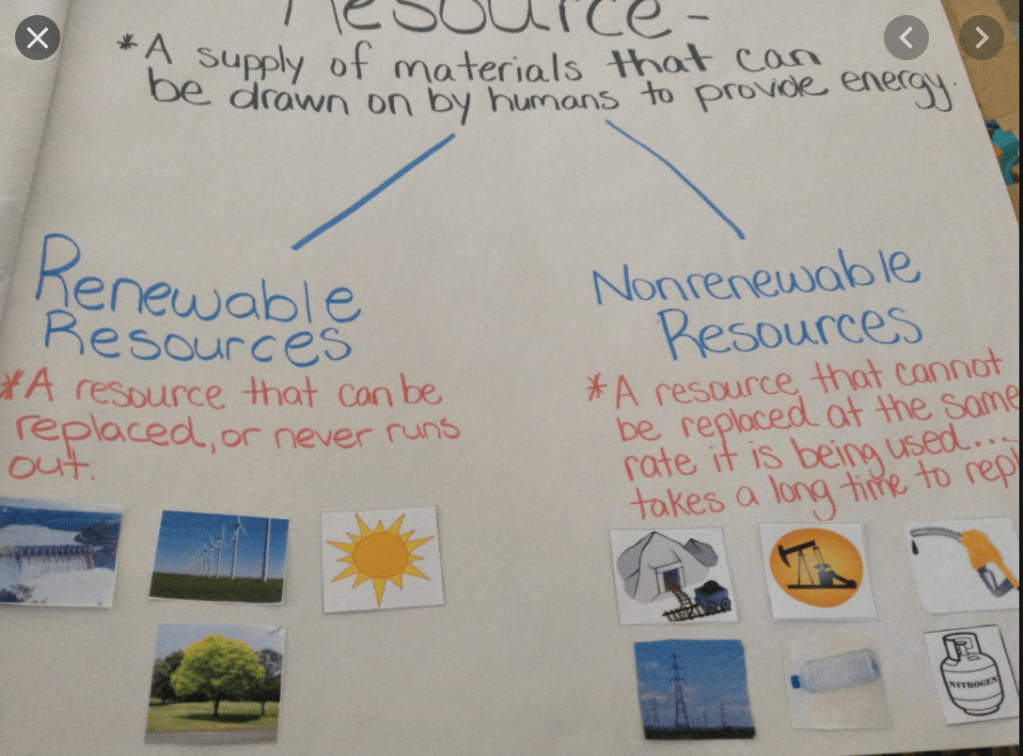 Resource -
*A supply of materials that can
be drawn on by humans to provide energy.
Renewable
Resources
*A resource that can be
replaced, or never runs
out.
Nonrenewable
Resources
*A resource that cannot
be replaced at the same
rate it is being used...
takes a long time to
NITROGEN